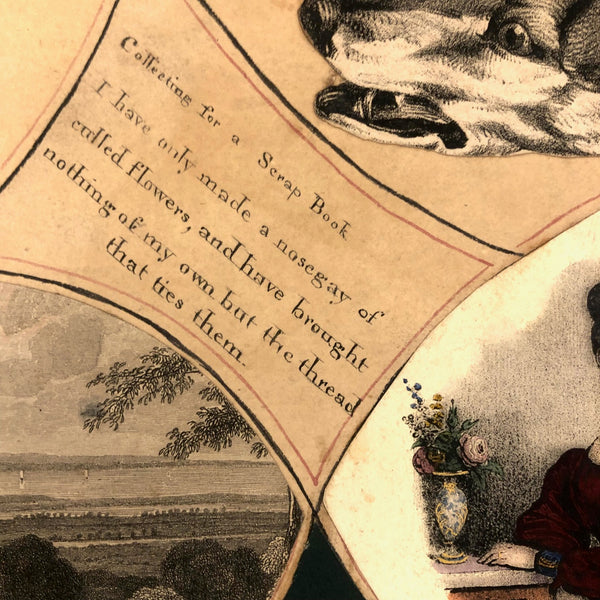 Collecting for a Scrap Book
I have only made a nosegay of
culled flowers, and have brought
nothing of my own but the thread
that ties them.